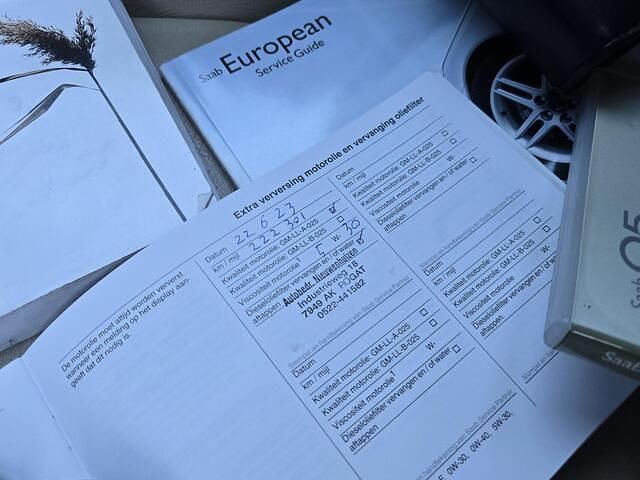 Saab European
Service Guide
Extra verversing motorolie en vervanging oliefilter
De motorolie moet altijd worden ververst
wanneer een melding op het display aan-
geeft dat dit nodig is.
Datum 22 6 23
km / mijl 222 301
Kwaliteit motorolie: GM-LL-A-025 ☑
Kwaliteit motorolie: GM-LL-B-025 ☐
Viscositeit motorolie¹ 5 W- 30
Dieseloliefilter vervangen en / of water ☑
aftappen
Autobedr. Nieuwenhuizen
Industrieweg
7949 AK ROGAT
0522-441582
Stempel en handtekening van Saab Service Partner
Datum
km / mijl
Kwaliteit motorolie: GM-LL-A-025 ☐
Kwaliteit motorolie: GM-LL-B-025 ☐
Viscositeit motorolie¹ W-
Dieseloliefilter vervangen en / of water ☐
aftappen
handtekening van Saab Service Partner
Datum
km / mijl
Kwaliteit motorolie: GM-LL-A-025 ☐
Kwaliteit motorolie: GM-LL-B-025 ☐
Viscositeit motorolie¹ W-
Dieseloliefilter vervangen en / of water ☐
aftappen
Stempel en handtekening van Saab Service Partner
Datum
km / mijl
Kwaliteit motorolie: GM-LL-A-025
Kwaliteit motorolie: GM-LL-B-025
Viscositeit motorolie¹
Dieseloliefilter vervangen en / of
aftappen
Stempel en handtekening van Saab
0W-30, 0W-40, 5W-30,
Saab
Saab